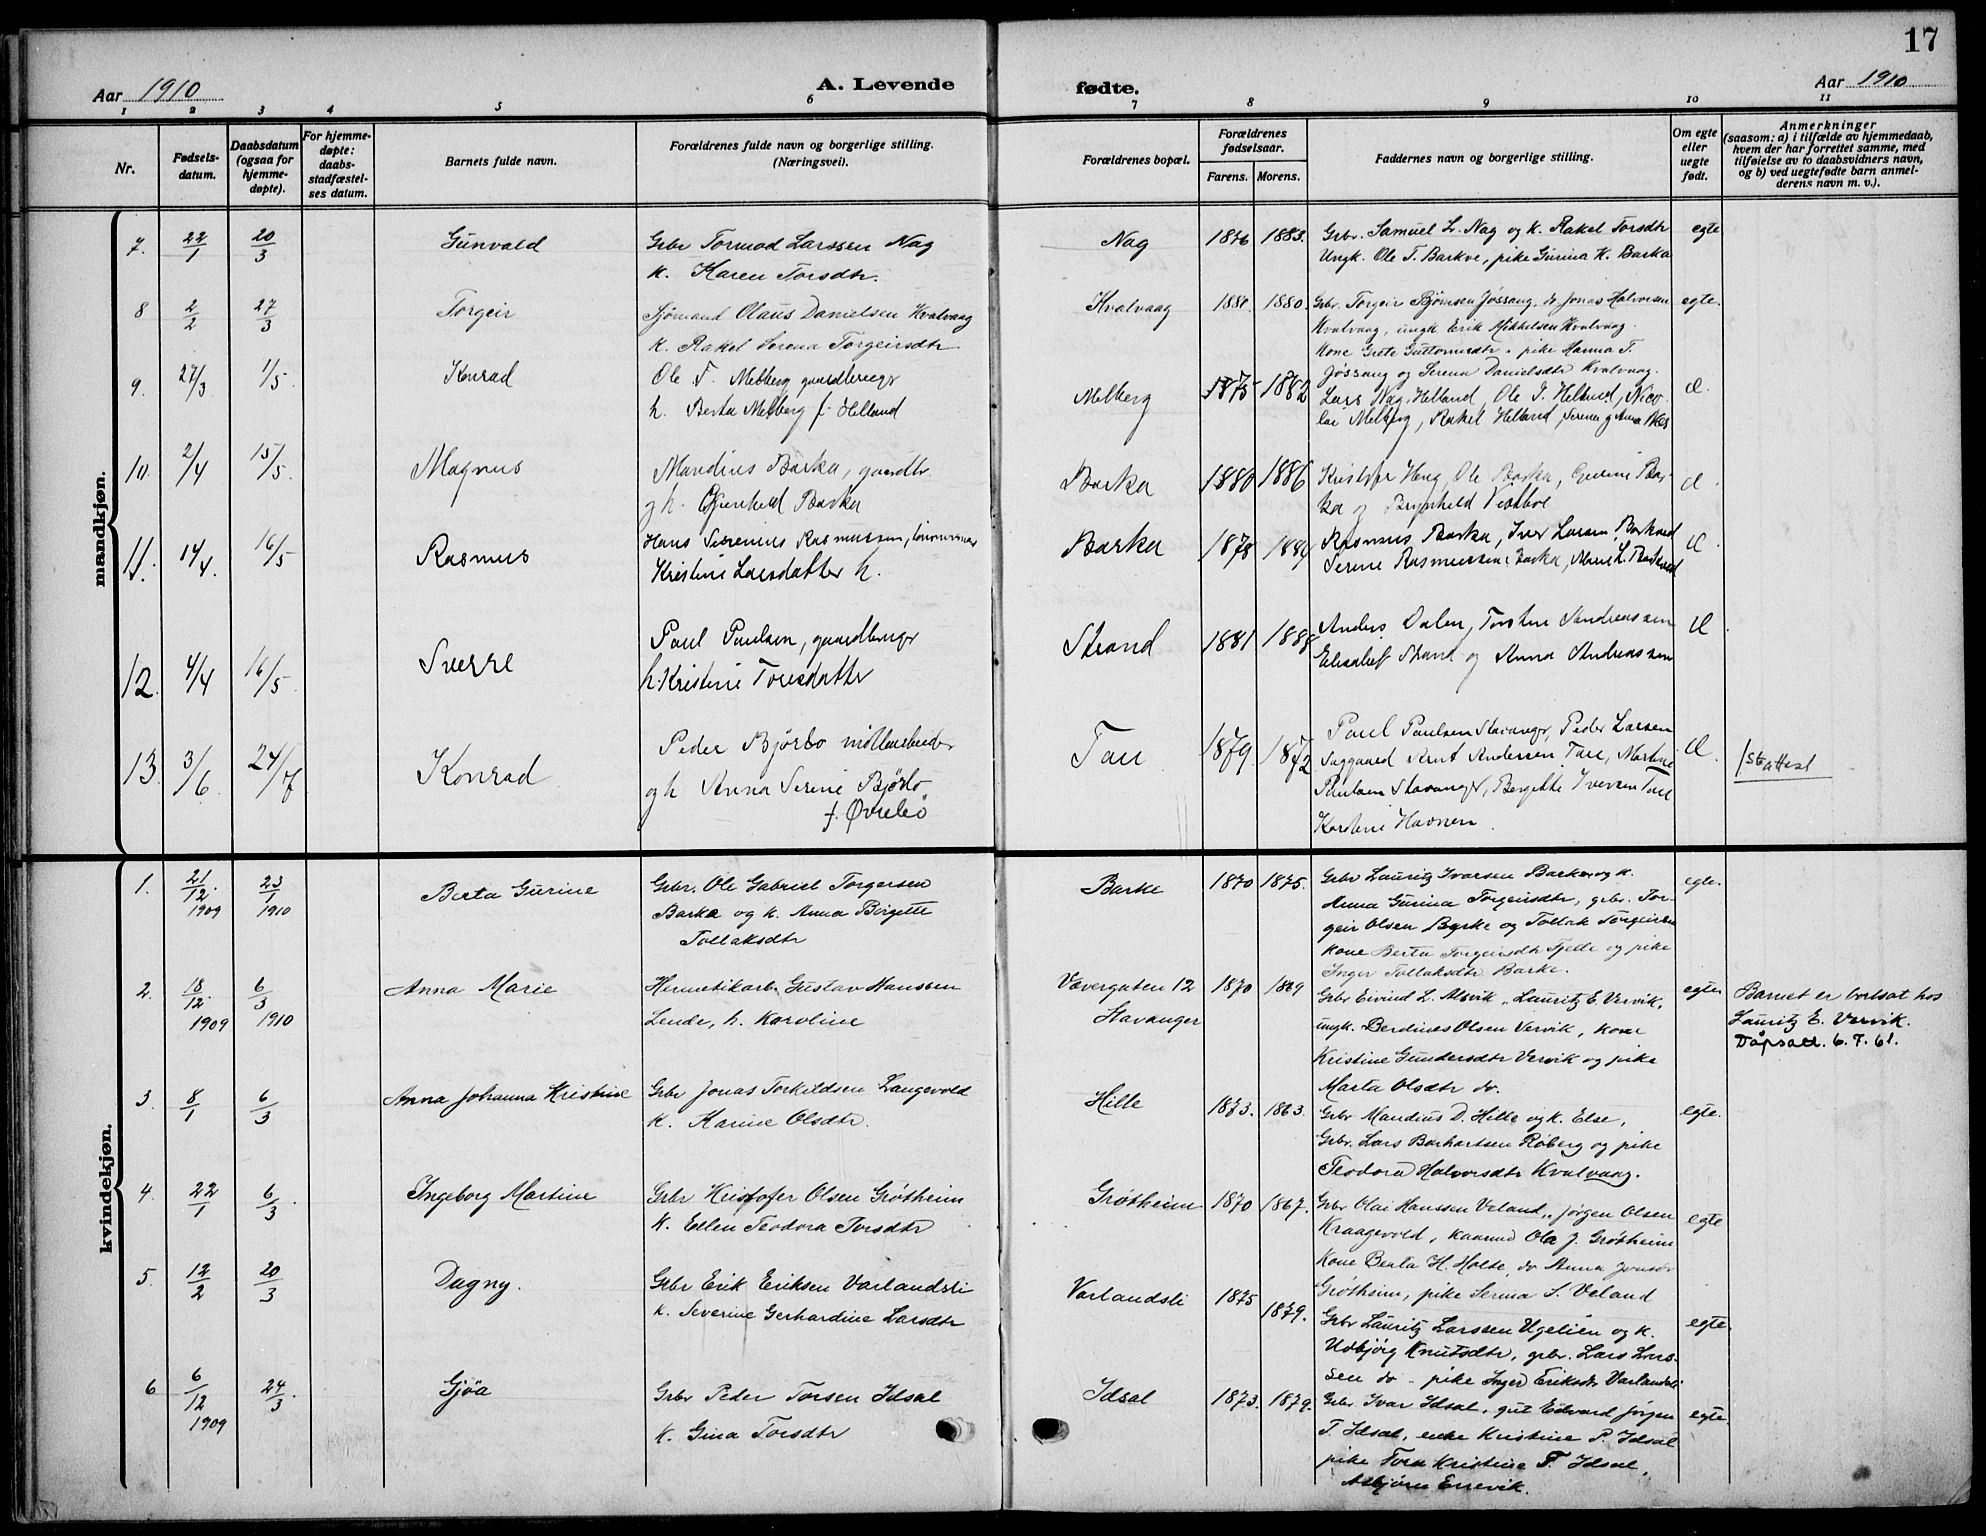 17
Aar 1910 A. Levende fødte. Aar 1910
1 2 3 4 5 6 7 8 9 10 11
Nr.
Fødsels-
datum.
Daabsdatum
(ogsaa for
hjemme-
døpte).
For hjemme-
døpte:
daabs-
stadfæstel-
ses datum.
Barnets fulde navn.
Forældrenes fulde navn og borgerlige stilling.
(Næringsvei).
Forældrenes bopæl.
Forældrenes
fødselsaar.
Farens. Morens.
Faddernes navn og borgerlige stilling.
Om egte
eller
uegte
født.
Anmerkninger
(saasom: a) i tilfælde av hjemmedaab,
hvem der har forrettet samme, med
tilføielse av to daabsvidners navn,
og b) ved uegtefødte barn anmel-
derens navn m. v.).
mandkjøn.
7. 22/1 20/3 Gunvald
Grbr Tormod Larssen Nag
K. Karen Torsdtr.
Nag 1876 1883.
Grbr. Samuel L. Nag og K. Rakel Torsdtr
Ungk. Ole T. Barkve, pike Gurina K. Barka
egte
8 2/2 27/3 Torgeir
Sjømand Olaus Danielsen Kvalvaag
K. Rakel Serena Torgeirsdtr.
Kvalvaag 1880. 1880.
Grbr. Torgeir Bjørnsen Jøssang, do Jonas Halvorsen
Kvalvaag, ungk Erik Mikkelsen Kvalvaag.
Kone Grete Guttormsdtr. pike Hanna T.
Jøssang og Serena Danielsdtr Kvalvaag.
egte.
9. 27/3 1/5. Konrad
Ole T. Melberg gaardbruger
h. Berta Melberg f. Helland
Melberg 1875 1882
Lars Nag, Helland, Ole J. Helland, Nico-
lai Melberg, Rakel Helland, Serena og Anna Nes
10. 2/4 15/5. Magnus
Mandius Barka, gaardbr.
og h. Barka
Barka 1880 1886
Kristofer Heng, Ole Barka, Bar-
ka og Brynheld
11. 14/4. 16/5 Rasmus
Hans Serenius Rasmussen,
Kristine Larsdatter h.
Barka 1878
Rasmus Barka, Iver Larsen
Serine Rasmussen Barka, Marie L.
12. 4/4 16/5. Sverre
Paul Paulsen, gaardbruger
h. Kristine Toresdatter
Strand 1881 1888
Anders Dalen, Torstein Andreassen
Elisabet Strand og Anna Andreassen
13. 3/6. 24/7 Konrad
Peder Bjørbo
og h Anna Serine Bjørbo
f. Øvrebø
Tau 1879. 1872
Paul Paulsen Stavanger, Peder Larsen
Arnt Andersen Tau, Martine
Paulsen Stavanger, Bergitte Iversen Tau
Karstine Havnen.
attest
kvindekjøn.
1. 21/12. 1909 23/1 1910 Berta Gurine
Grbr. Ole Gabriel Torgersen
Barka og K. Anna Bergitte
Tollaksdtr
Barke 1870 1875.
Grbr Lauritz Ivarsen Barka og K.
Anna Gurina Torgeirsdtr, grbr. Tor-
geir Olsen Byrke og Tollak Torgeirsen
Kone Berta Torgeirsdtr Fjelde og pike
Inger Tollaksdtr Barke.
egte.
2. 18/12. 1909 6/3 1910 Anna Marie
Hermetikarb. Gustav Hanssen
Lende, h. Karoline
Vævergaten 12
Stavanger
1870 1869
Grbr Eivind L. Alsvik, Lauritz E. Vervik,
ungk. Berdines Olsen Vervik, kone
Kristine Gundersdtr Vervik og pike
Marta Olsdtr do.
egte
Barnet er bortsat hos
Lauritz E. Vervik.
Dåpsatt. 6.7.61.
3. 8/1 6/3 Anna Johanna Kristine
Grbr Jonas Torkildsen Langevold
K. Karine Olsdtr.
Hille 1873. 1863.
Grbr Mandius D. Hille og K. Else,
Grbr. Lars Berhartsen Røberg og pike
Teodora Halvorsdtr Kvalvaag.
egte.
4. 22/1 6/3 Ingeborg Martine
Grbr Kristofer Olsen Grøtheim
K. Ellen Teodora Torsdtr
Grøtheim 1870 1867.
Grbr Olai Hanssen Veland, Jørgen Olsen
Kraagevold, kaarmd Ola J. Grøtheim
Kone Berta H. Holte, do Anna Jonsdr
Grøtheim, pike Serina S. Veland
egte
5. 12/2 20/3 Dagny.
Grbr Erik Eriksen Varlandsli
K. Severine Gerhardine Larsdtr
Varlandsli 1875 1879.
Grbr Lauritz Larssen Ugelien og K.
Udbjørg Knutsdtr, grbr. Lars Lars-
sen do. pike Inger Eriksdtr Varlandsli
egte.
6 6/12 1909 24/3. Gjøa
Grbr Peder Torsen Idsal
K. Gina Torsdtr
Idsal 1873. 1879.
Grbr Ivar Idsal, gut Edvard Jørgen
T. Idsal, enke Kristine P. Idsal
pike Tora Kristine T. Idsal,
Asbjørn Errevik.
egte.